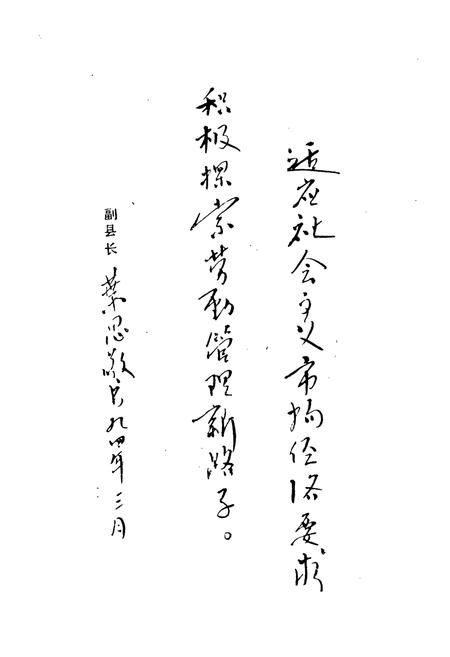 适应社会主义市场经济要求
积极探索劳动管理新路子。
副县长 叶思敬 九四年三月